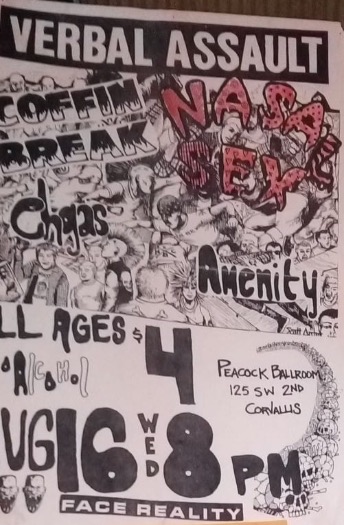 VERBAL ASSAULT
COFFIN BREAK
NASAL SEX
Chgas
Amenity
LL AGES $4
ALCOHOL
PEACOCK BALLROOM
125 SW 2ND
CORVALLIS
UG 16 WED 8 PM
FACE REALITY